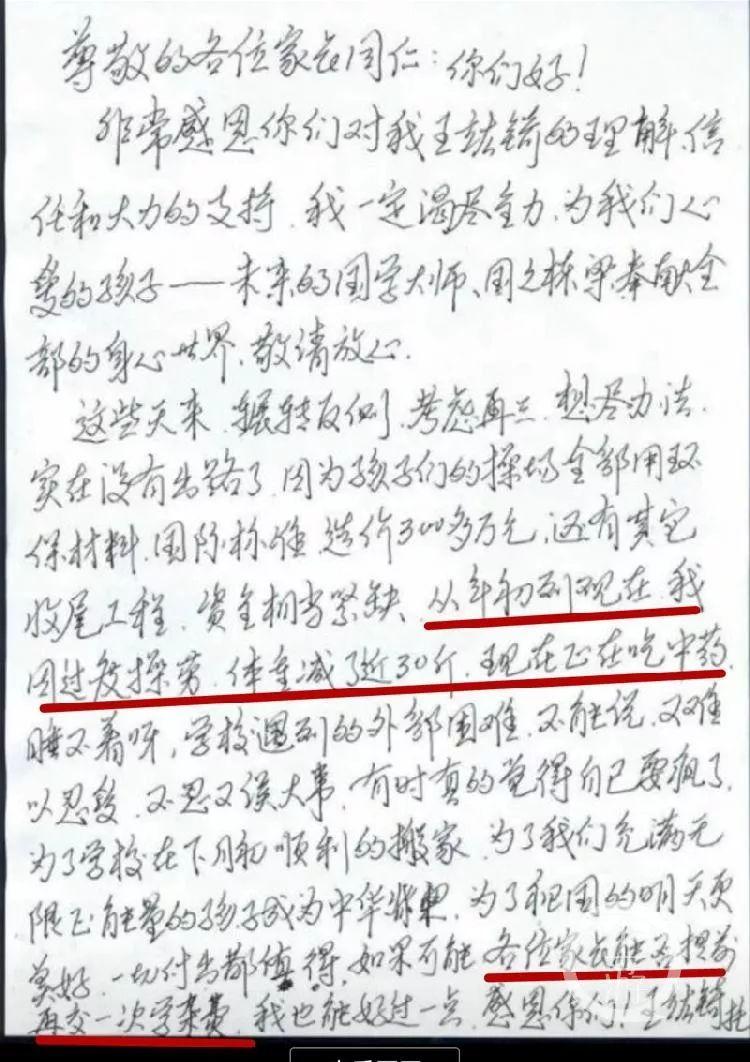 尊敬的各位家长同仁：你们好！
非常感恩你们对我王喆锜的理解、信
任和大力的支持。我一定竭尽全力，为我们心
爱的孩子——未来的国学大师、国之栋梁奉献全
部的身心世界，敬请放心。
这些天来，辗转反侧，考虑再三，想尽办法，
实在没有出路了，因为孩子们的操场全部用环
保材料，国际标准，造价300多万元，还有其它
收尾工程，资金相当紧缺、从年初到现在，我
因过度操劳，体重减了近30斤，现在正在吃中药，
睡不着呀，学校遇到的外部困难，不能说，又难
以忍受，不忍又误大事，有时真的觉得自己要疯了，
为了学校在下月初顺利的搬家，为了我们充满无
限正能量的孩子成为中华紫，为了祖国的明天更
美好，一切付出都值得，如果可能，各位家长能否提前
再交一次学杂费，我也能好过一点，感恩你们！王喆锜